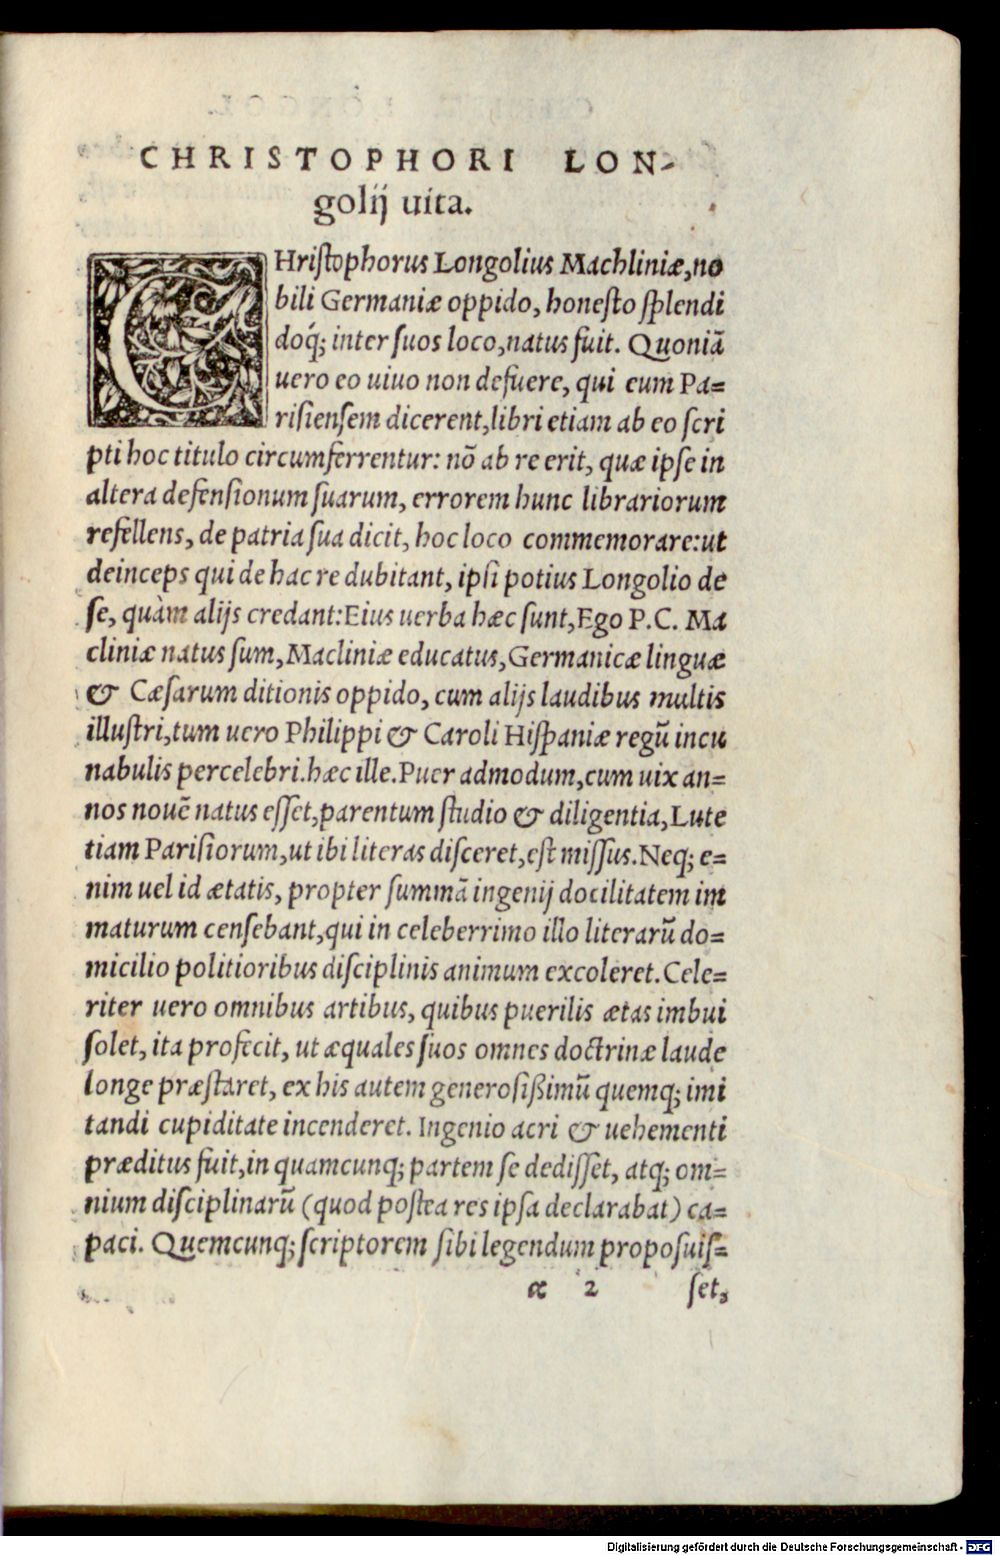 CHRISTOPHORI LON-
golij uita.
CHristophorus Longolius Machliniæ, no
bili Germaniæ oppido, honesto splendi
doq́; inter suos loco, natus fuit. Quoniã
uero eo uiuo non defuere, qui eum Pa=
risiensem dicerent, libri etiam ab eo scri
pti hoc titulo circumferrentur: nõ ab re erit, quæ ipse in
altera defensionum suarum, errorem hunc librariorum
refellens, de patria sua dicit, hoc loco commemorare: ut
deinceps qui de hac re dubitant, ipsi potius Longolio de
se, quàm alijs credant: Eius uerba hæc sunt, Ego P.C. Ma
cliniæ natus sum, Macliniæ educatus, Germanicæ linguæ
& Cæsarum ditionis oppido, cum alijs laudibus multis
illustri, tum uero Philippi & Caroli Hispaniæ regũ incu
nabulis percelebri. hæc ille. Puer admodum, cum uix an=
nos nouẽ natus esset, parentum studio & diligentia, Lute
tiam Parisiorum, ut ibi literas disceret, est missus. Neq; e=
nim uel id ætatis, propter summã ingenij docilitatem im
maturum censebant, qui in celeberrimo illo literarũ do=
micilio politioribus disciplinis animum excoleret. Cele=
riter uero omnibus artibus, quibus puerilis ætas imbui
solet, ita profecit, ut æquales suos omnes doctrinæ laude
longe præstaret, ex his autem generosißimũ quemq; imi
tandi cupiditate incenderet. Ingenio acri & uehementi
præditus fuit, in quamcunq; partem se dedisset, atq; om=
nium disciplinarũ (quod postea res ipsa declarabat) ca=
paci. Quemcunq; scriptorem sibi legendum proposuis=
α 2 set,
Digitalisierung gefördert durch die Deutsche Forschungsgemeinschaft - DFG